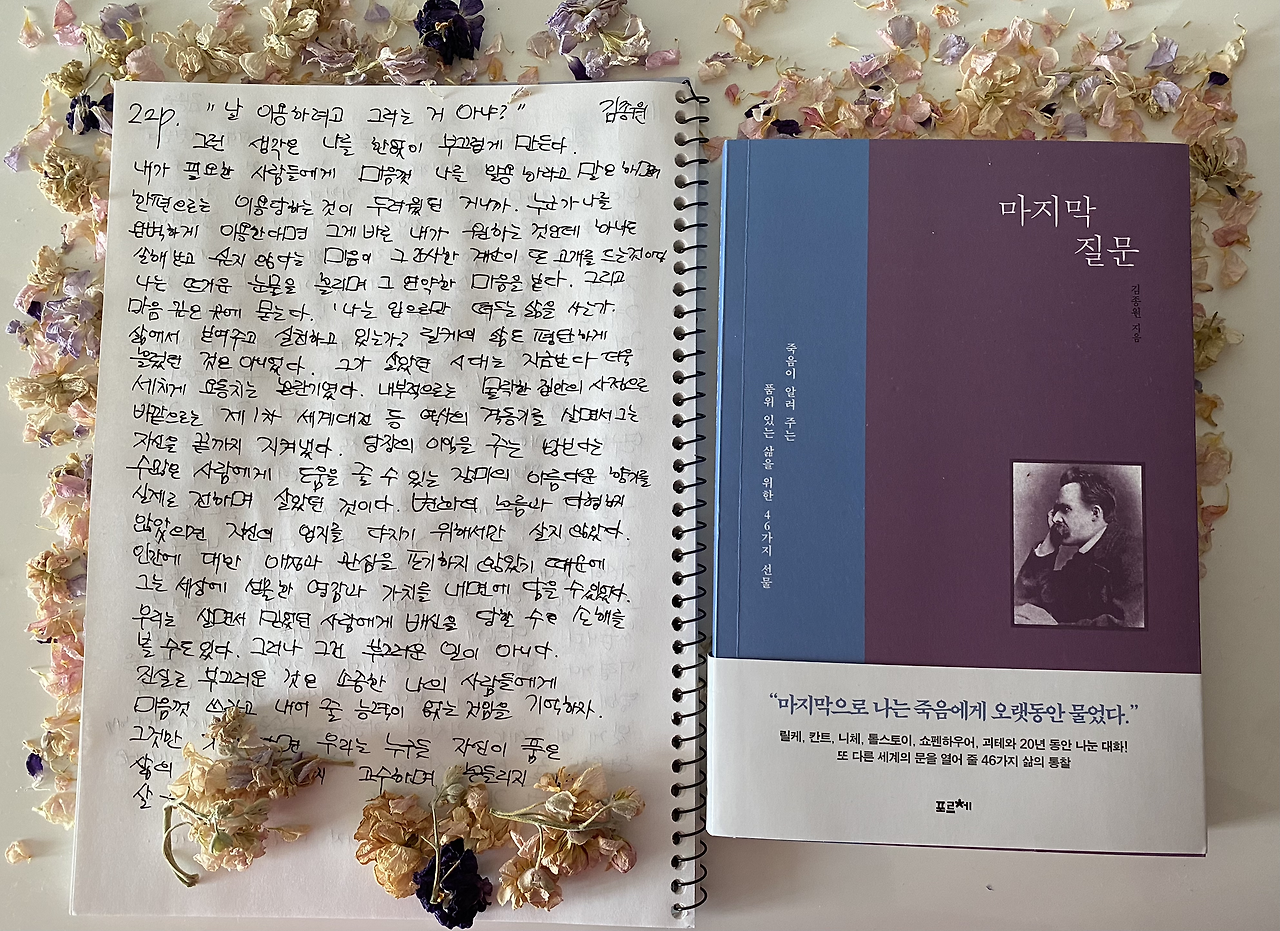 22p. "날 이용하려고 그러는 거 아냐?" 김종원
그런 생각은 나를 한없이 부끄럽게 만든다.
내가 필요한 사람들에게 마음껏 나를 이용하라고 말은 하며
한편으로는 이용당하는 것이 두려웠던 거니까. 누군가 나를
완벽하게 이용한다면 그게 바로 내가 원하는 것인데 하나도
손해 받고 싶지 않다는 마음이 그 간사한 계산이 또 고개를 드는 것이다
나는 뜨거운 눈물을 흘리며 그 연약한 마음을 본다. 그리고
마음 깊은 곳에 묻는다. '나는 입으로만 떠드는 삶을 사는가.
삶에서 보여주고 실천하고 있는가? 릴케의 삶도 평탄하게
흘렀던 것은 아니었다. 그가 살았던 시대는 지금보다 더욱
세차게 요동치는 혼란기였다. 내부적으로는 몰락한 집안의 사정으로
바깥으로는 제1차 세계대전 등 역사의 격동기를 살면서 그는
자신을 끝까지 지켜냈다. 당장의 이익을 주는 방법보다는
수많은 사람에게 도움을 줄 수 있는 장미의 아름다운 향기를
실제로 전하며 살았던 것이다. 변화의 흐름과 타협하지
않았으며 자신의 입지를 다지기 위해서만 살지 않았다.
인간에 대한 애정과 관심을 포기하지 않았기 때문에
그는 세상에 섬물한 영감과 가치를 내면에 담을 수 있었다.
우리는 살면서 믿었던 사람에게 배신을 당할 수도 손해를
볼 수도 있다. 그러나 그건 부끄러운 일이 아니다.
진실로 부끄러운 것은 소중한 나의 사람들에게
마음껏 쓰라고 내어 줄 능력이 없는 것임을 기억하자.
그것만 우리는 누구든 자신이 품은
삶의 고수하며 흔들리지
살
마지막
질문
김종원 지음
죽음이 알려 주는
품위 있는 삶을 위한 46가지 선물
"마지막으로 나는 죽음에게 오랫동안 물었다."
릴케, 칸트, 니체, 톨스토이, 쇼펜하우어, 괴테와 20년 동안 나눈 대화!
또 다른 세계의 문을 열어 줄 46가지 삶의 통찰
포르체